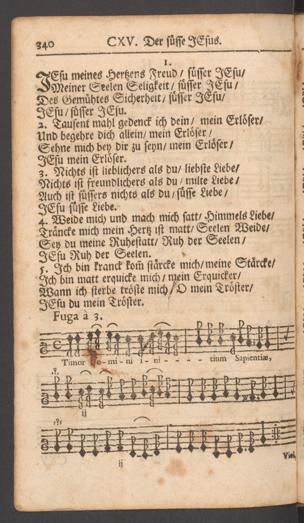 340 CXV. Der süsse JEsus.
1.
JEsu meines Hertzens Freud / süsser JEsu /
Meiner Seelen Seligkeit / süsser JEsu /
Des Gemühtes Sicherheit / süsser JEsu /
JEsu / süsser JEsu.
2. Tausent mahl gedenck ich dein / mein Erlöser /
Und begehre dich allein / mein Erlöser /
Sehne mich bey dir zu seyn / mein Erlöser /
JEsu mein Erlöser.
3. Nichts ist lieblichers als du / liebste Liebe /
Nichts ist freundlichers als du / milte Liebe /
Auch ist süssers nichts als du / süsse Liebe /
JEsu süsse Liebe.
4. Weide mich und mach mich satt / Himmels Liebe /
Träncke mich mein Hertz ist matt / Seelen Weide /
Sey du meine Ruhestatt / Ruh der Seelen /
JEsu Ruh der Seelen.
5. Ich bin kranck kom stärcke mich / meine Stärcke /
Ich bin matt erquicke mich / mein Erquicker /
Wann ich sterbe tröste mich / O mein Tröster /
JEsu du mein Tröster.
Fuga à 3.
Timor Domini i - ni - - - - - tium Sapientiæ,
ij
ij